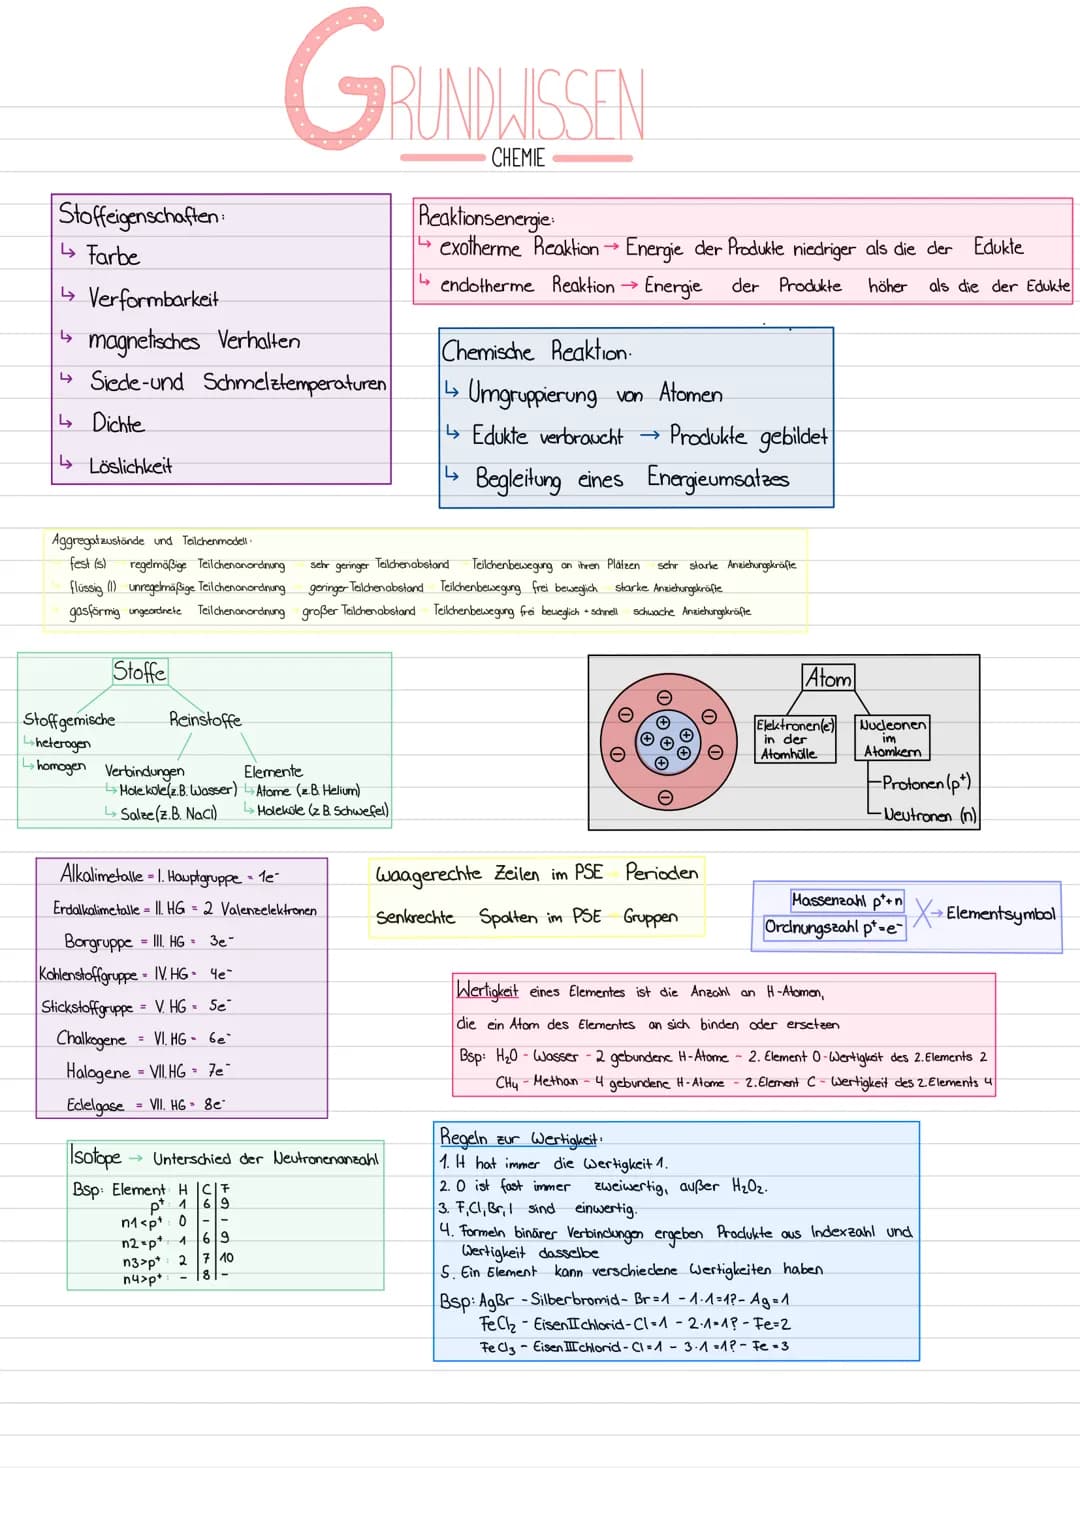 GRUNDWISSEN
CHEMIE
Stoffeigenschaften:
↳ Farbe
↳ Verformbarkeit
↳ magnetisches Verhalten
↳ Siede-und Schmelztemperaturen
↳ Dichte
↳ Löslichkeit
Reaktionsenergie:
↳ exotherme Reaktion → Energie der Produkte niedriger als die der Edukte
↳ endotherme Reaktion → Energie der Produkte höher als die der Edukte
Chemische Reaktion:
↳ Umgruppierung von Atomen
↳ Edukte verbraucht → Produkte gebildet
↳ Begleitung eines Energieumsatzes
Aggregatzustände und Teilchenmodell:
fest (s) regelmäßige Teilchenanordnung sehr geringer Teilchenabstand Teilchenbewegung an ihren Plätzen sehr starke Anziehungskräfte
flüssig (l) unregelmäßige Teilchenanordnung geringer Teilchenabstand Teilchenbewegung frei beweglich starke Anziehungskräfte
gasförmig ungeordnete Teilchenanordnung großer Teilchenabstand Teilchenbewegung frei beweglich + schnell schwache Anziehungskräfte
Stoffe
Stoffgemische Reinstoffe
↳ heterogen
↳ homogen
Verbindungen Elemente
↳ Moleküle (z.B. Wasser) ↳ Atome (z.B. Helium)
↳ Salze (z.B. NaCl) ↳ Moleküle (z.B. Schwefel)
Atom
Elektronen(e⁻) in der Atomhülle
Nucleonen im Atomkern
Protonen (p⁺)
Neutronen (n)
Alkalimetalle = I. Hauptgruppe = 1e⁻
Erdalkalimetalle = II. HG = 2 Valenzelektronen
Borgruppe = III. HG = 3e⁻
Kohlenstoffgruppe = IV. HG = 4e⁻
Stickstoffgruppe = V. HG = 5e⁻
Chalkogene = VI. HG = 6e⁻
Halogene = VII. HG = 7e⁻
Edelgase = VII. HG = 8e⁻
waagerechte Zeilen im PSE Perioden
senkrechte Spalten im PSE Gruppen
Massenzahl p⁺+n
Ordnungszahl p⁺=e⁻
X → Elementsymbol
Wertigkeit eines Elementes ist die Anzahl an H-Atomen,
die ein Atom des Elementes an sich binden oder ersetzen
Bsp: H₂O - Wasser - 2 gebundene H-Atome - 2. Element O - Wertigkeit des 2. Elements 2
CH₄ - Methan - 4 gebundene H-Atome - 2. Element C - Wertigkeit des 2. Elements 4
Isotope → Unterschied der Neutronenanzahl
Bsp: Element: H | C | F
p⁺: 1 | 6 | 9
n1<p⁺: 0 | - | -
n2=p⁺: 1 | 6 | 9
n3>p⁺: 2 | 7 | 10
n4>p⁺: - | 8 | -
Regeln zur Wertigkeit:
1. H hat immer die Wertigkeit 1.
2. O ist fast immer zweiwertig, außer H₂O₂.
3. F, Cl, Br, I sind einwertig.
4. Formeln binärer Verbindungen ergeben Produkte aus Indexzahl und
Wertigkeit dasselbe
5. Ein Element kann verschiedene Wertigkeiten haben
Bsp: AgBr - Silberbromid - Br=1 - 1·1=1? - Ag=1
FeCl₂ - EisenIIchlorid - Cl=1 - 2·1=1? - Fe=2
FeCl₃ - EisenIIIchlorid - Cl=1 - 3·1=1? - Fe=3